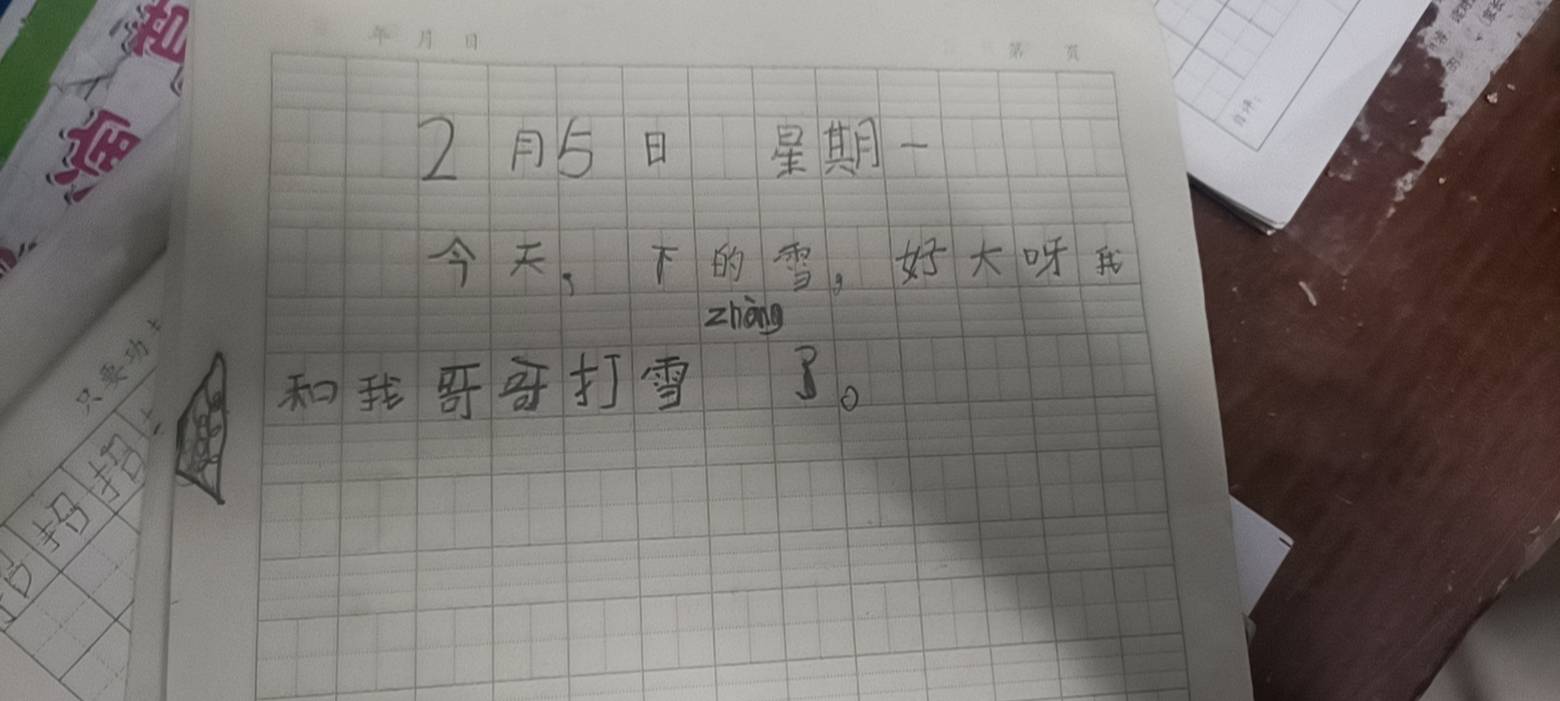 年 月 日
第 页
2月5日 星期一
今天,下的雪,好大呀我
zhàng
和我哥哥打雪 了。
只要功
招 招